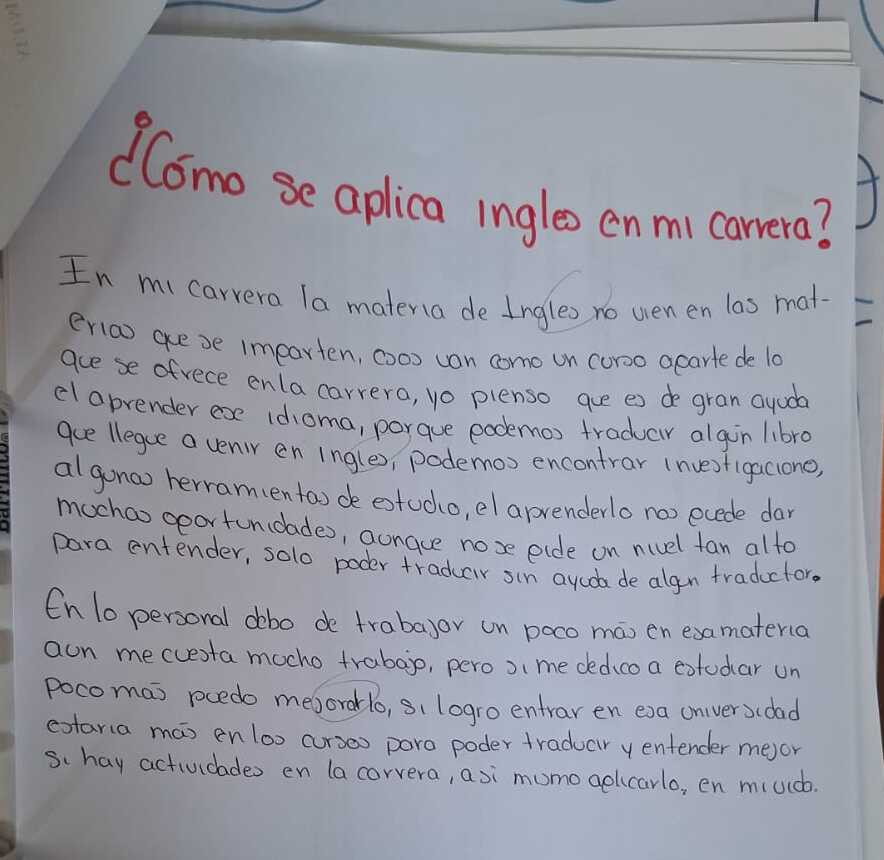 ¿Cómo se aplica ingles en mi carrera?
En mi carrera la materia de Ingles no vien en las mat-
erias que se imparten, esos van como un curso aparte de lo
que se ofrece en la carrera, yo pienso que es de gran ayuda
el aprender ese idioma, porque podemos traducir algún libro
que llegue a venir en ingles, podemos encontrar investigaciones,
algunas herramientas de estudio, el aprenderlo nos puede dar
muchas oportunidades, aunque no se pide un nivel tan alto
para entender, solo poder traducir sin ayuda de algun traductor.
En lo personal debo de trabajar un poco más en esa materia
aun me cuesta mucho trabajo, pero si me dedico a estudiar un
poco más puedo mejorarlo, si logro entrar en esa universidad
estaria más en los cursos para poder traducir y entender mejor
si hay actividades en la carrera, asi mismo aplicarlo, en mi vida.